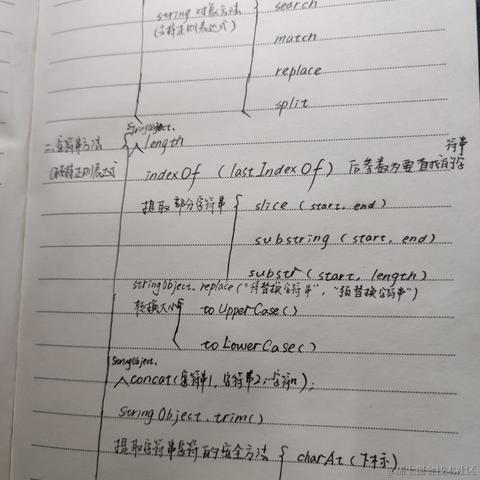 string 对象方法
(支持正则表达式)
search
match
replace
split
二、字符串方法
(不支持正则表达式)
StringObject.
length
indexOf (lastIndexOf) 后参数为要查找的字
符串
提取部分字符串
slice (start, end)
substring (start, end)
substr (start, length)
stringObject.replace("待替换字符串", "替换字符串")
转换大小
toUpperCase()
toLowerCase()
StringObject.
concat(字符串1, 字符串2, 字符n);
StringObject.trim()
提取字符串字符的安全方法
charAt (下标)
@稀土掘金技术社区